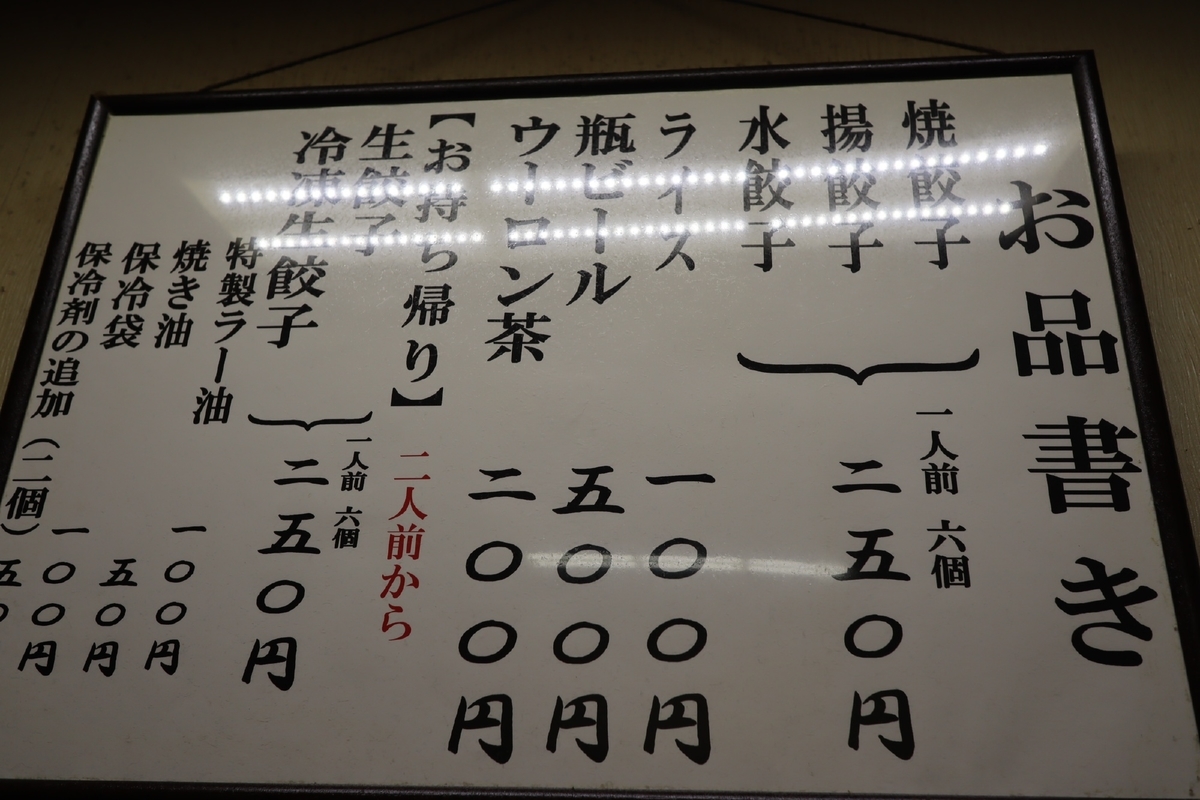 お品書き
焼餃子
揚餃子
水餃子
一人前 六個
二五〇円
ライス 一〇〇円
瓶ビール 五〇〇円
ウーロン茶 二〇〇円
【お持ち帰り】 二人前から
生餃子
冷凍生餃子
一人前 六個
二五〇円
特製ラー油 一〇〇円
焼き油 五〇円
保冷袋 一〇〇円
保冷剤の追加（二個） 五〇